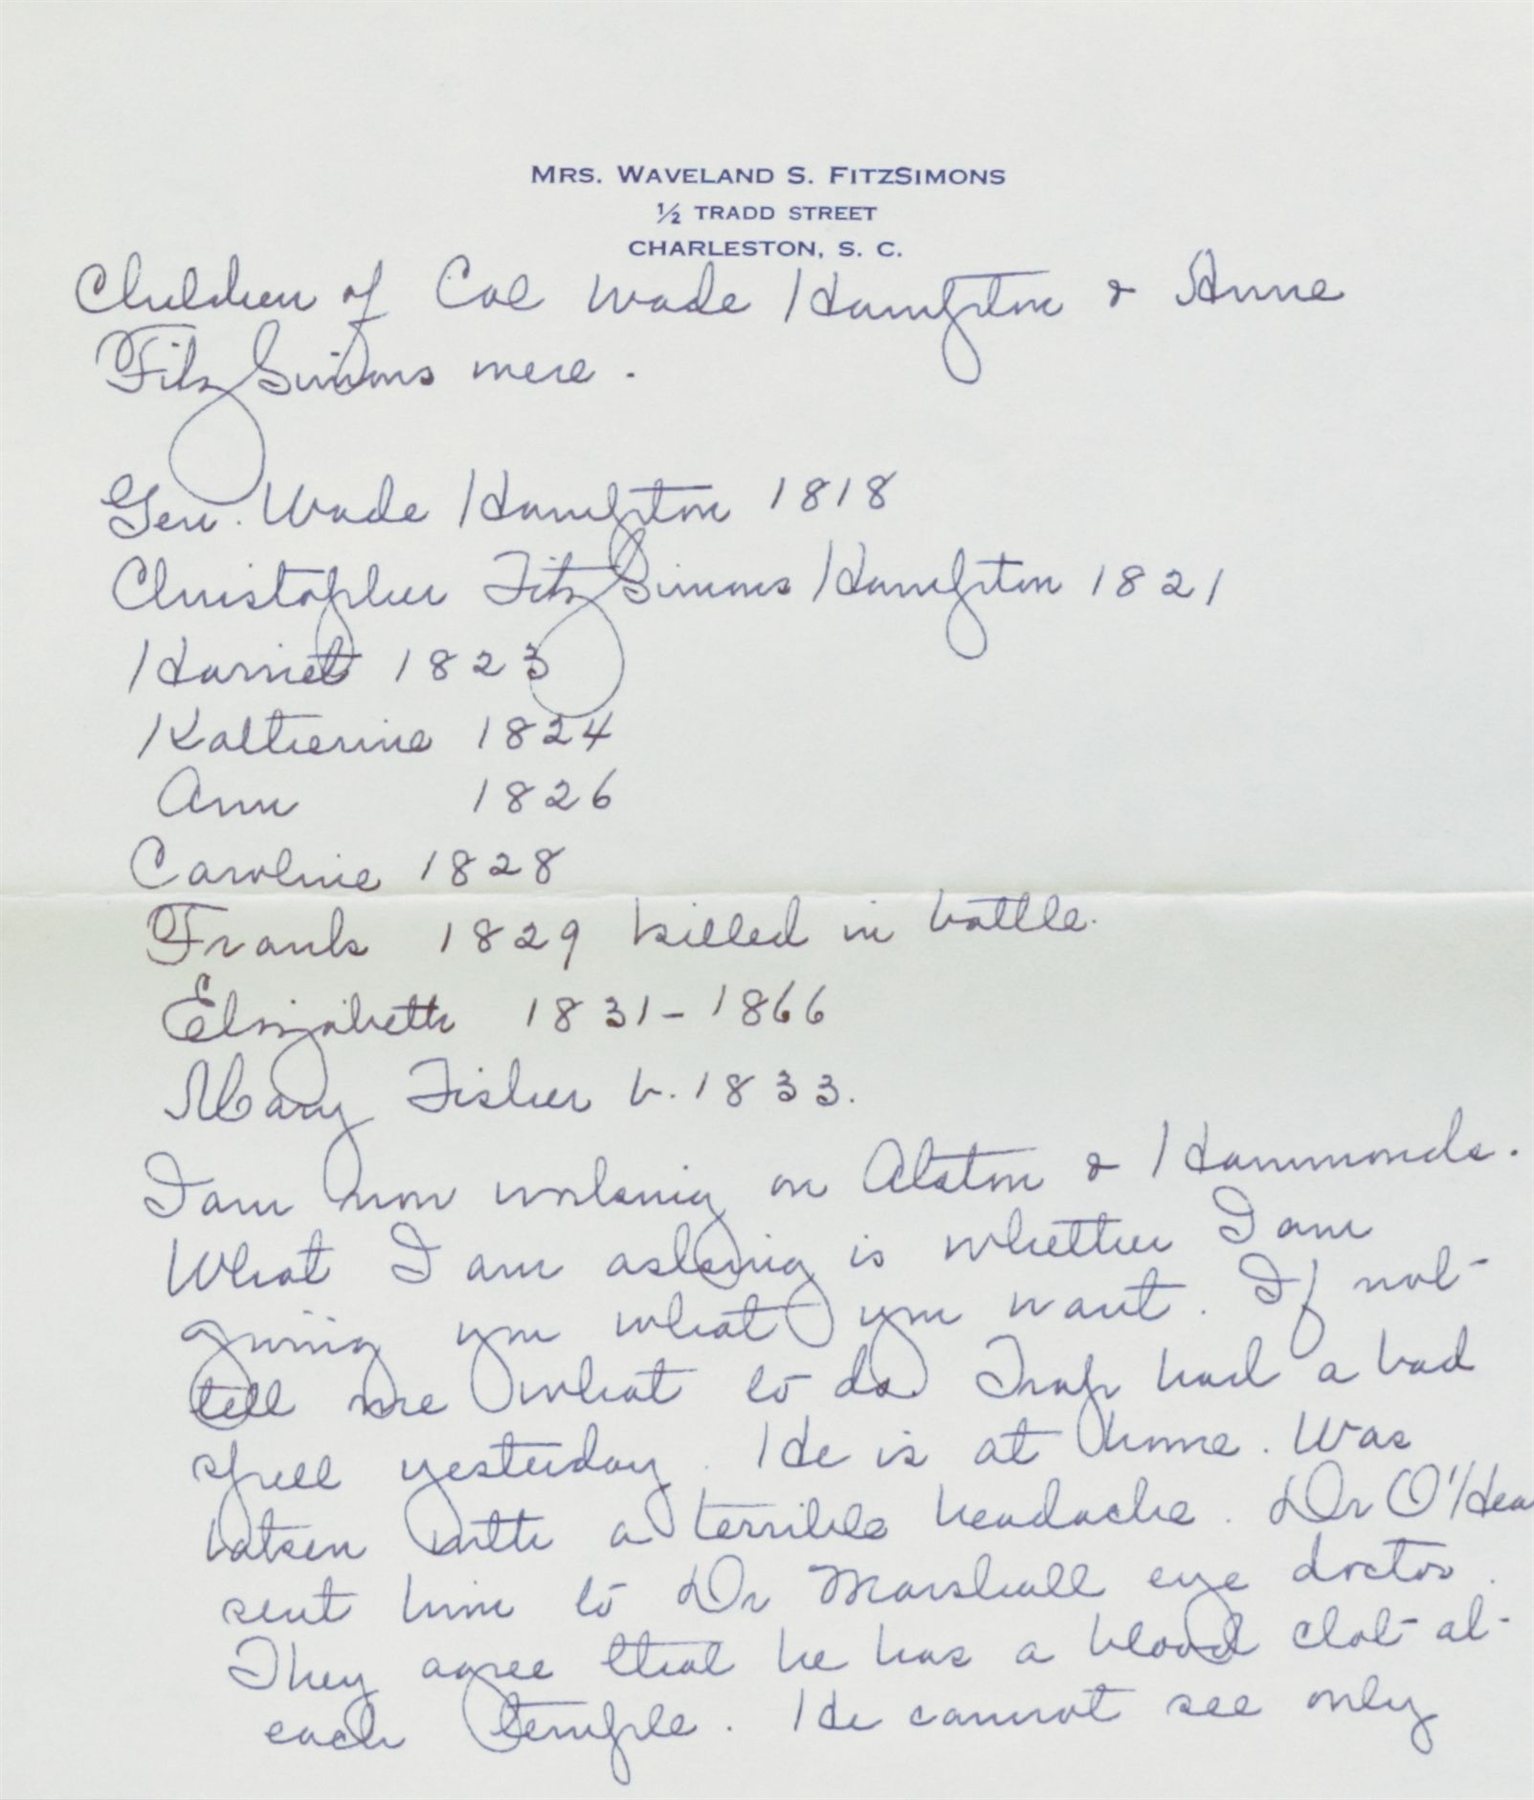 MRS. WAVELAND S. FITZSIMONS
½ TRADD STREET
CHARLESTON, S. C.
Children of Col Wade Hampton & Anne
FitzSimons were.
Gen. Wade Hampton 1818
Christopher FitzSimons Hampton 1821
Harriet 1823
Katherine 1824
Ann 1826
Caroline 1828
Frank 1829 killed in battle.
Elizabeth 1831-1866
Mary Fisher b. 1833.
I am now working on Alston & Hammonds.
What I am asking is whether I am
giving you what you want. If not
tell me what to do. Trap had a bad
spell yesterday. He is at home. Was
taken with a terrible headache. Dr O'Hea
sent him to Dr Marshall eye doctor.
They agree that he has a blood clot at
each temple. He cannot see only